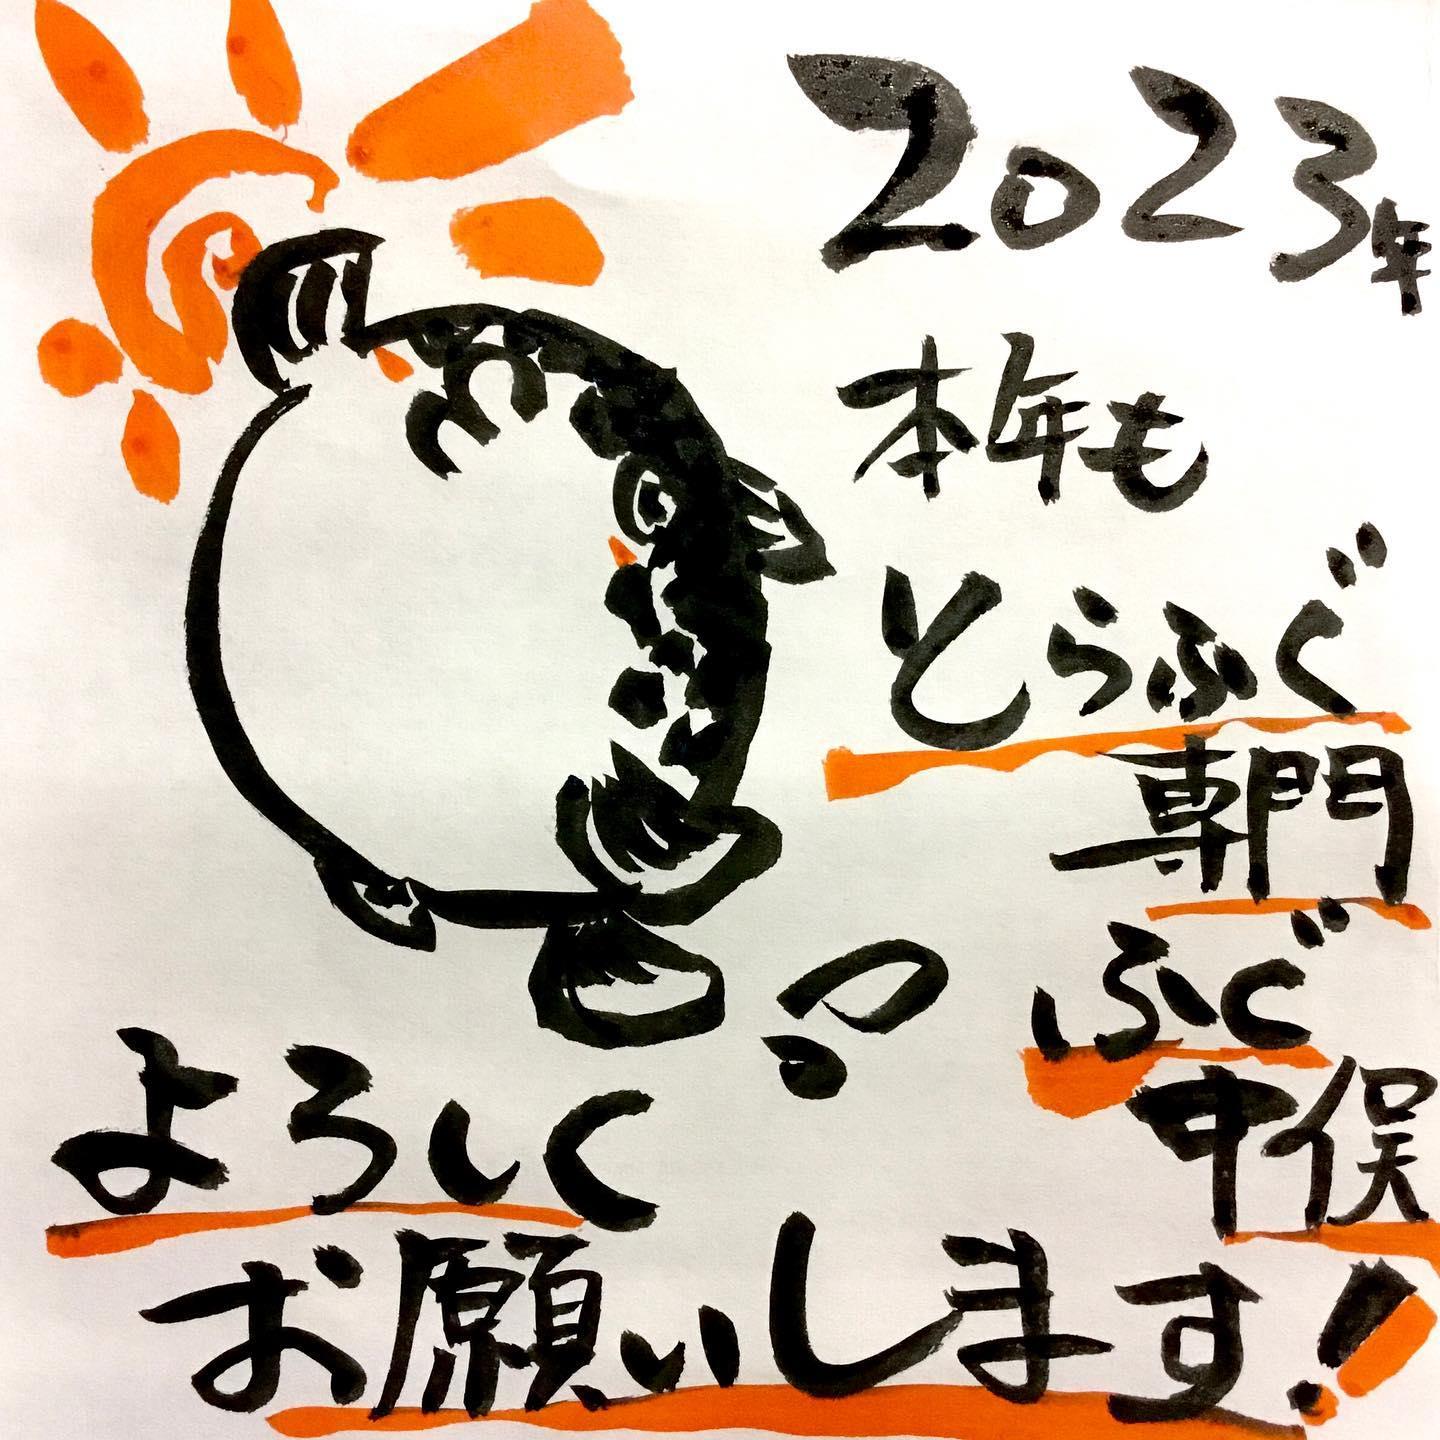 2023年
本年も
とらふぐ
専門
ふぐ
中俣
よろしく
お願いします!